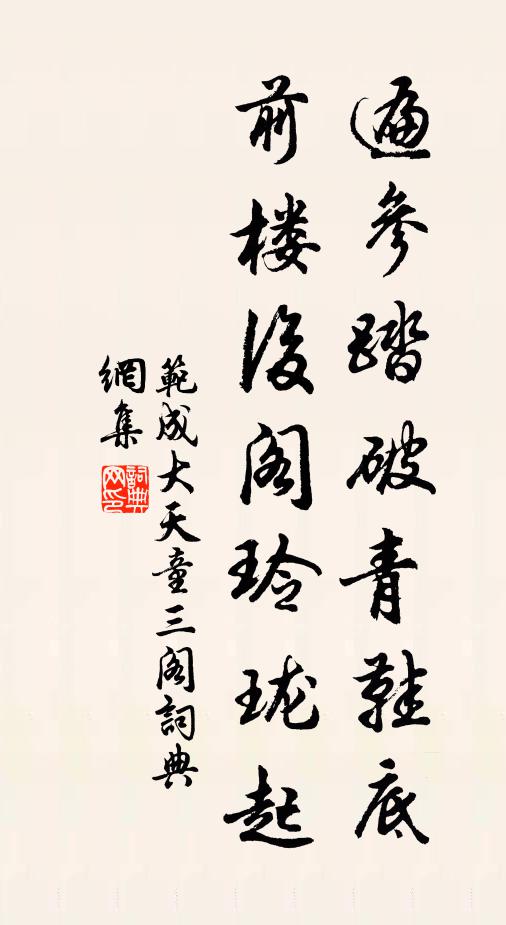 遍參踏破青鞋底
前楼後阁玲珑起
範成大天童三阁詞典
網集
詞典
网印